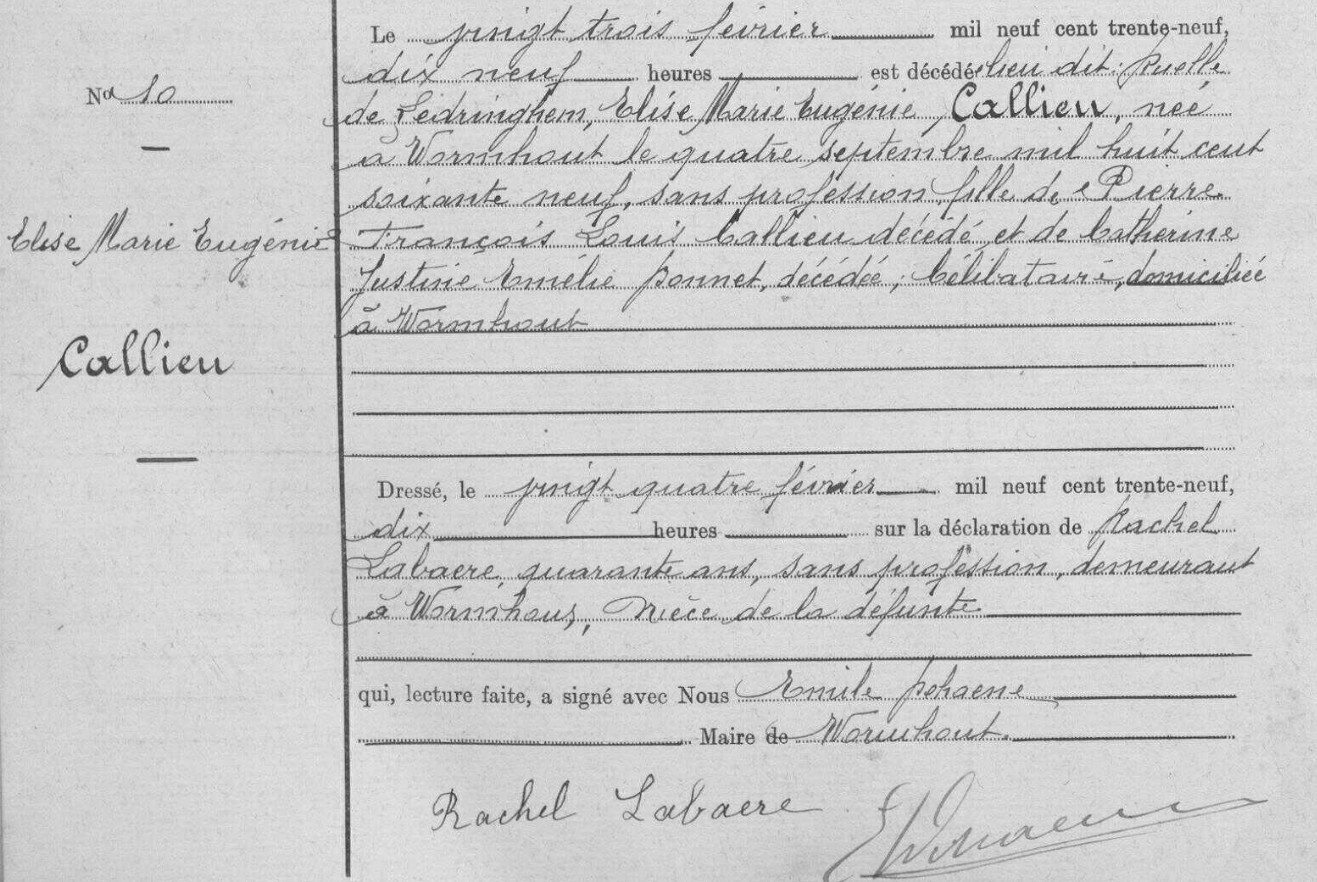 Le vingt trois février mil neuf cent trente-neuf,
dix neuf heures est décédée lieu dit: Ruelle
No 10
de Ledringhem, Elise Marie Eugénie Callieu, neé
à Wormhout le quatre septembre mil huit cent
soixante neuf, sans profession, fille de Pierre
Elise Marie Eugénie
François Louis Callieu décédé et de Catherine
Justine Amélie, décédée; Célibataire, domiciliée
à Wormhout
Callieu
Dressé, le vingt quatre février mil neuf cent trente-neuf,
dix heures sur la déclaration de Rachel
Labaere, quarante ans, sans profession, demeurant
à Wormhout, Nièce de la défunte
qui, lecture faite, a signé avec Nous Emile
Maire de Wormhout.
Rachel Labaere